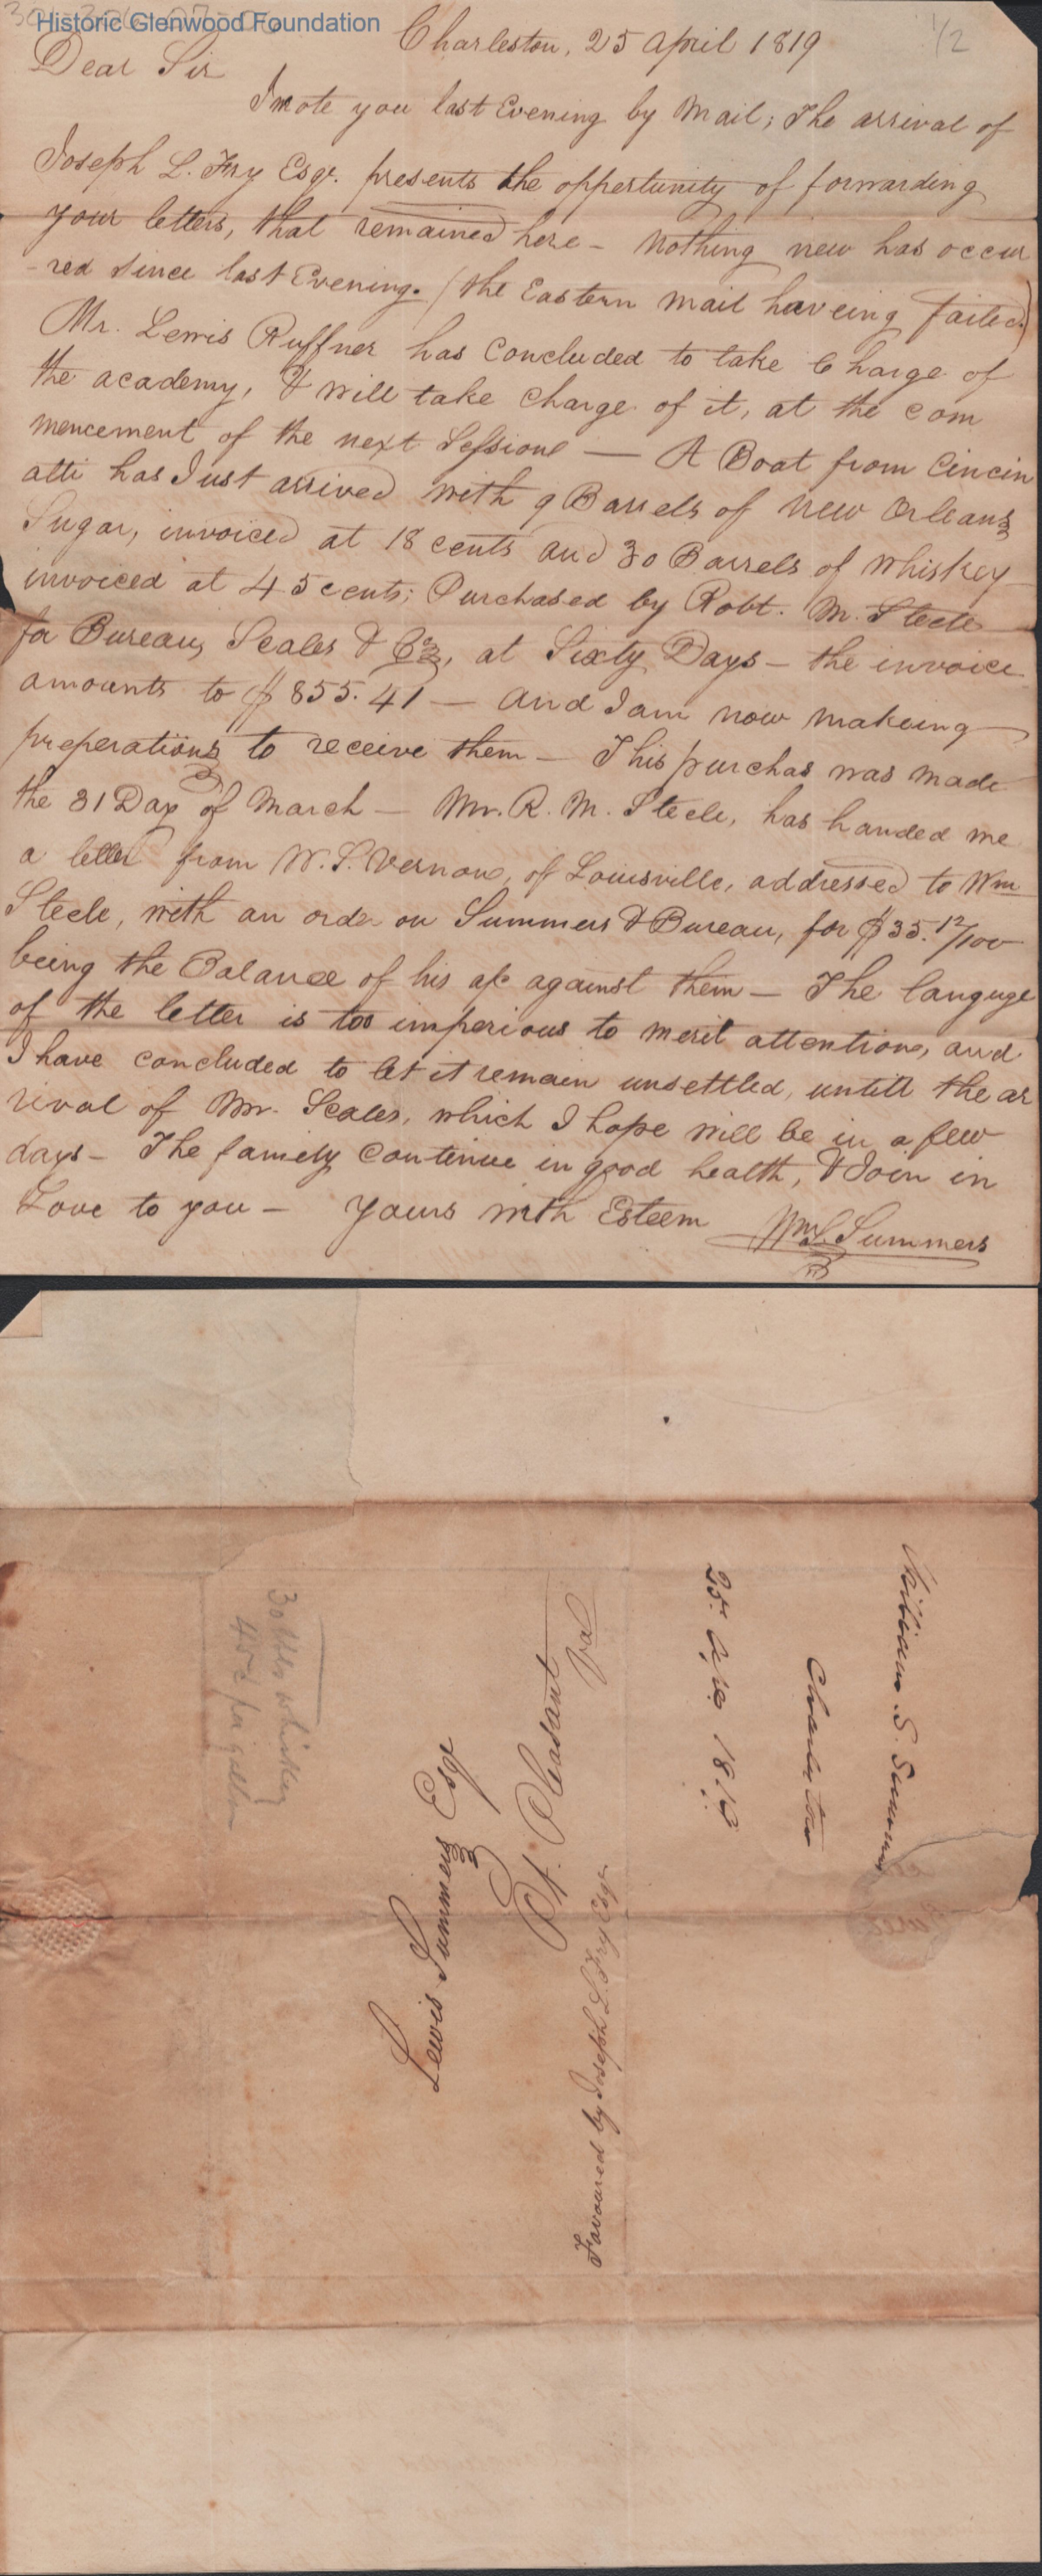 Historic Glenwood Foundation
1/2
Charleston, 25 April 1819
Dear Sir
I wrote you last Evening by Mail; The arrival of
Joseph L. Fry Esqr. presents the oppertunity of forwarding
your letters, that remained here – nothing new has occur
-red since last Evening. (the Eastern mail haveing failed.)
Mr. Lewis Ruffner has Concluded to take Charge of
the academy, & will take charge of it, at the com
mencement of the next Session — A Boat from Cincin
atti has Just arrived with 9 Barrels of New Orleans
Sugar, invoiced at 18 cents and 30 Barrels of Whiskey
invoiced at 45 cents; Purchased by Robt. M. Steele
for Bureau, Scales & Co, at Sixty Days – the invoice
amounts to $855.41 — and I am now makeing
preperations to receive them – This purchas was made
the 31 Day of March – Mr. R. M. Steele, has handed me
a letter from W. S. Vernon, of Louisville, addressed to Wm
Steele, with an order on Summers & Bureau, for $35.12/100
being the Balance of his a/c against them – The languge
of the letter is too imperious to merit attention, and
I have concluded to let it remain unsettled, untill the ar
rival of Mr. Scales, which I hope will be in a few
days – The family Continue in good health, & Join in
Love to you – Yours with Esteem Wm S. Summers
William S. Summers
Charleston
25. Apl 1819
Lewis Summers Esqr
Pt. Pleasant
Va
Favoured by Joseph L. Fry Esqr
30 bbls whiskey
45¢ per gallon